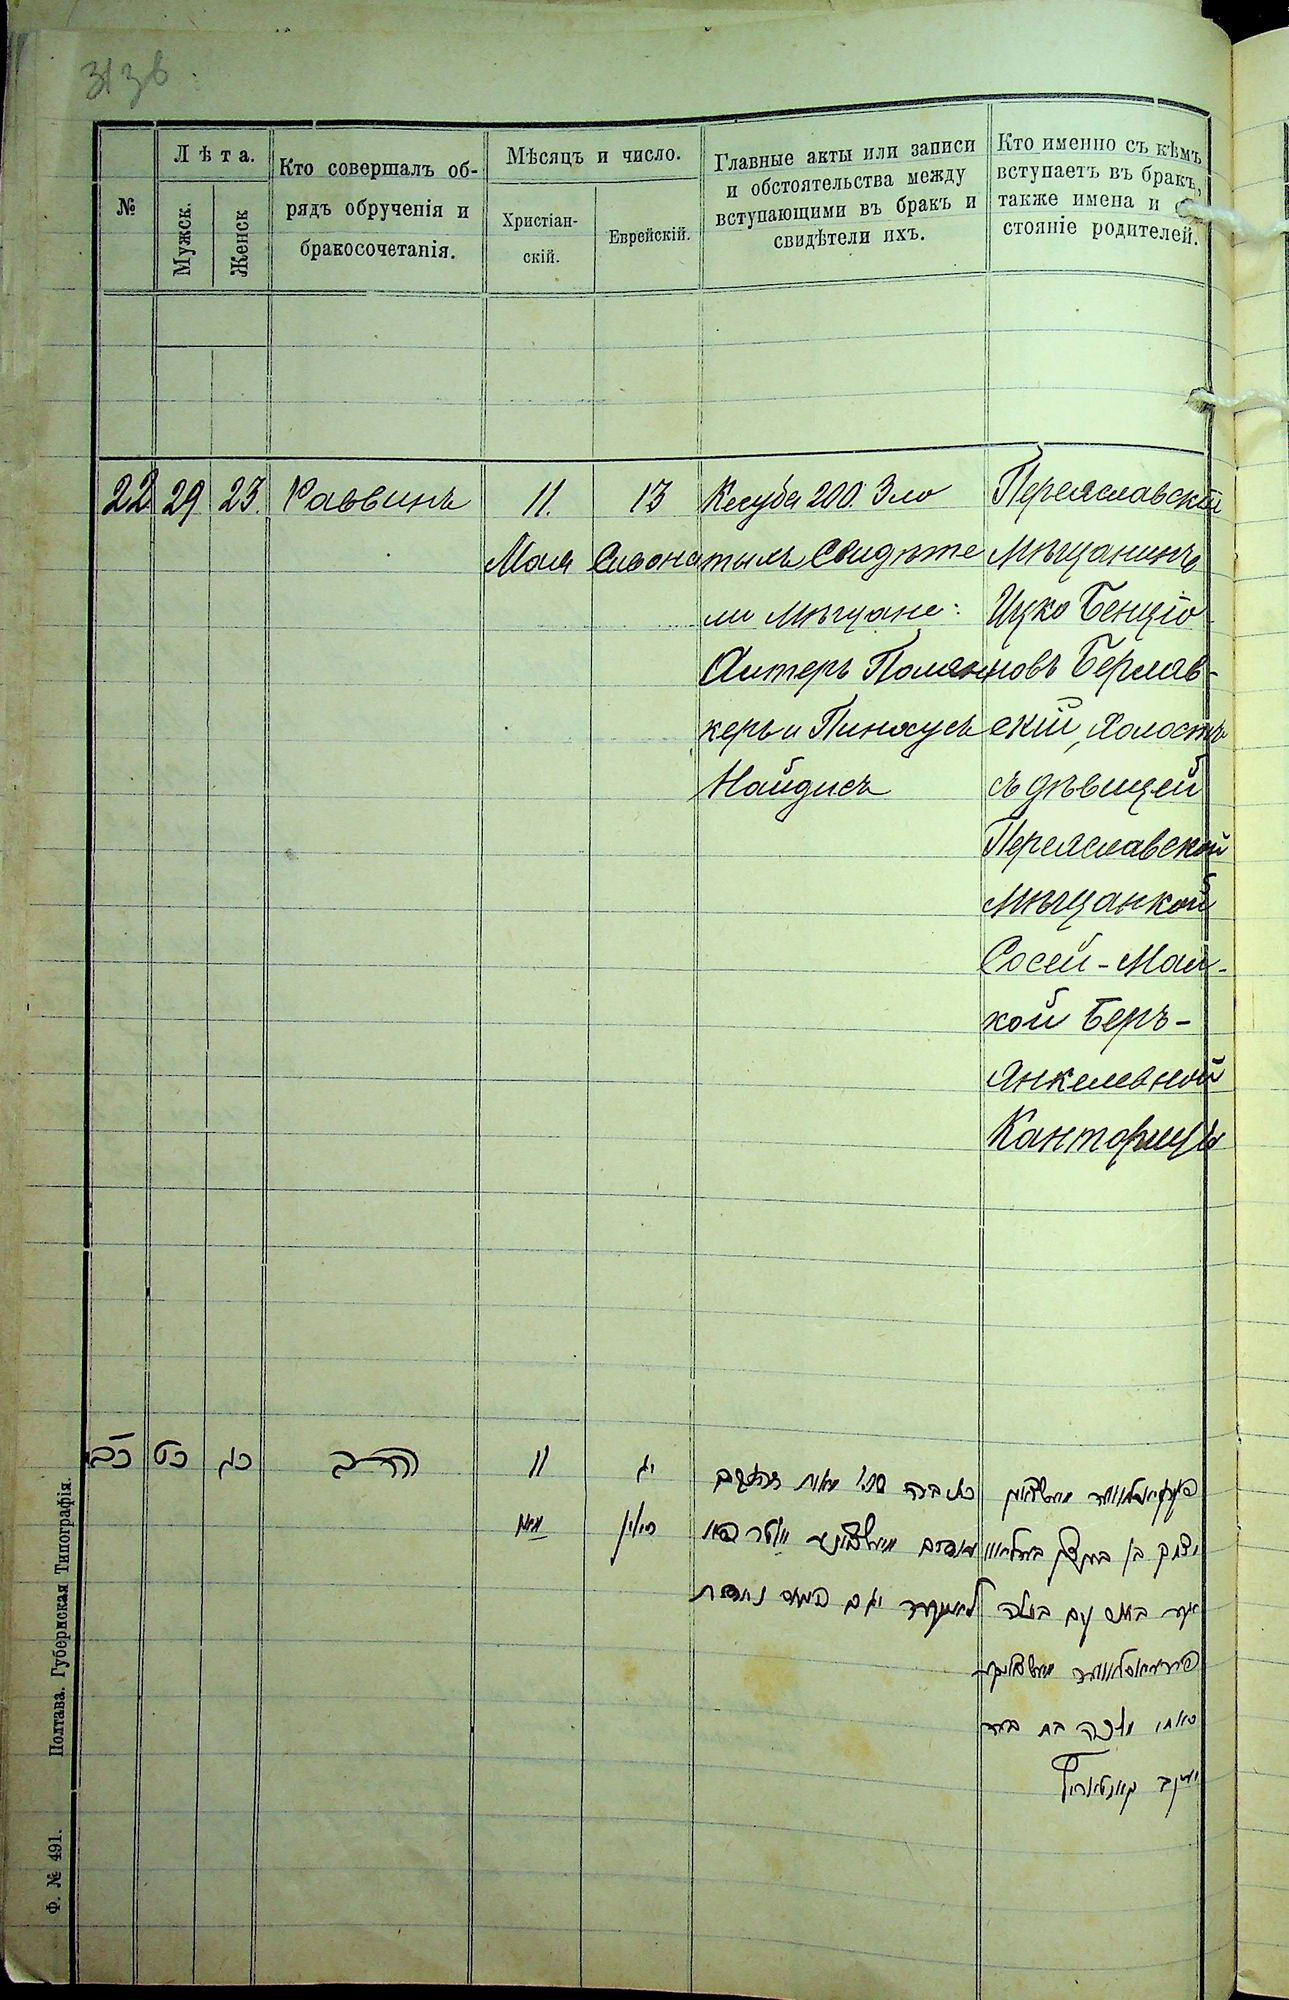 313б
№
Лѣта.
Мужск.
Женск
Кто совершалъ об-
рядъ обрученія и
бракосочетанія.
Мѣсяцъ и число.
Христіан-
скій.
Еврейскій.
Главные акты или записи
и обстоятельства между
вступающими въ бракъ и
свидѣтели ихъ.
Кто именно съ кѣмъ
вступаетъ въ бракъ,
также имена и со
стояніе родителей.
22
29
23.
Раввинъ
11.
Мая
13
Сивона
Кесуба 200. Зло
тыхъ Свидѣте
ли мѣщане:
Аитеръ Полян
керъ и Пинхусъ
Найдисъ
Переяславскій
мѣщанинъ
Ицко Бенціо
новъ Берляв-
скій, холостъ
съ дѣвицей
Переяславской
мѣщанкой
Сосей-Мал-
кой Беръ-
Янкелевной
Канторицъ
כב
כט
כג
הרב
11
מיי
יג
סיון
כתובה
יצחק בן
עם
מלכה בת בער
יעקב קאנטאריץ
Полтава. Губернская Типографія.
Ф. № 491.